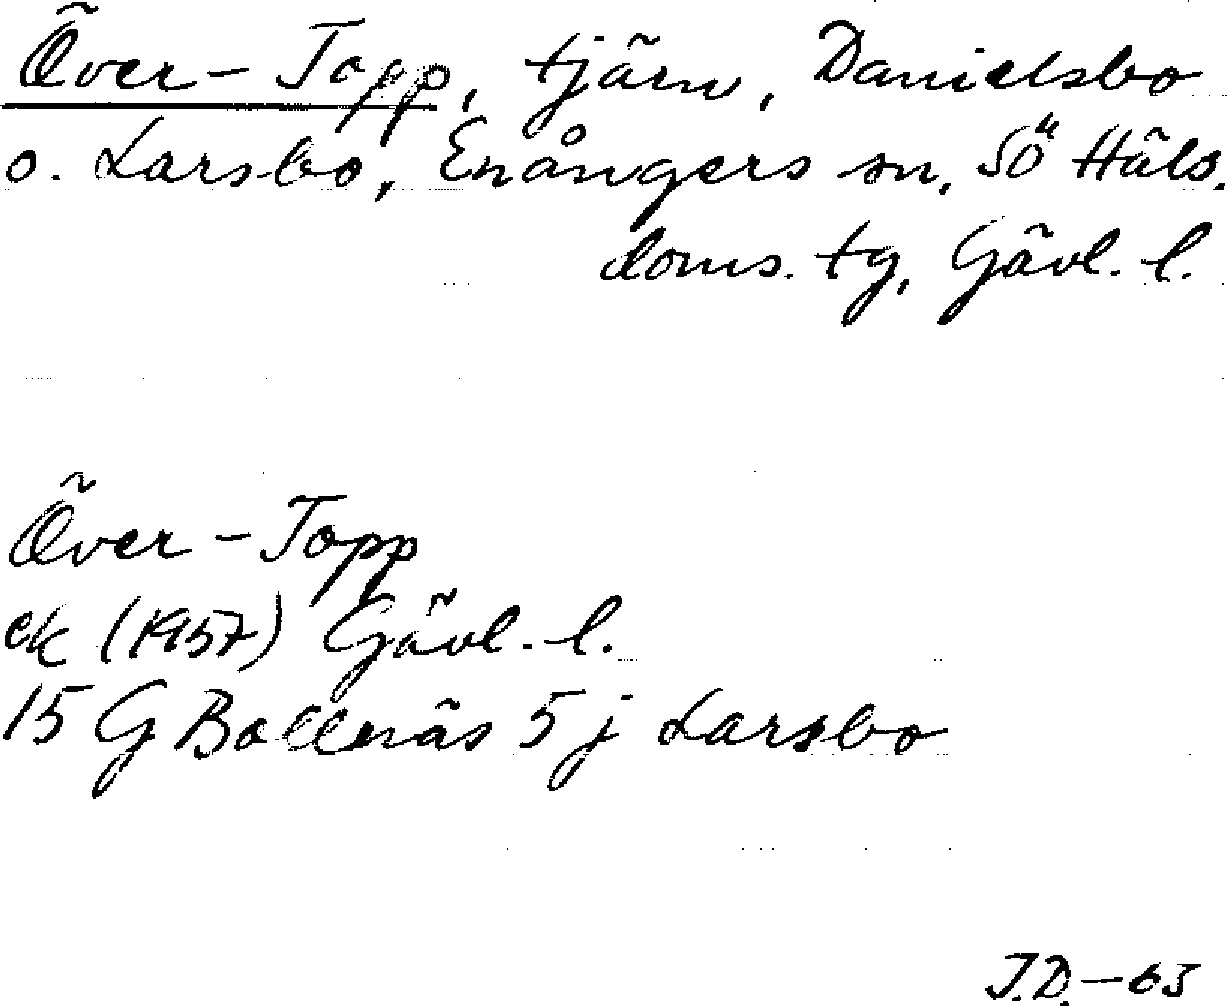 Över-Topp, tjärn, Danielsbo
o. Larsbo, Enångers sn, Sö Häls.
doms. tg, Gävl. l.
Över-Topp
ek (1957) Gävl. l.
15 G Bollnäs 5 j Larsbo
J.D.-63